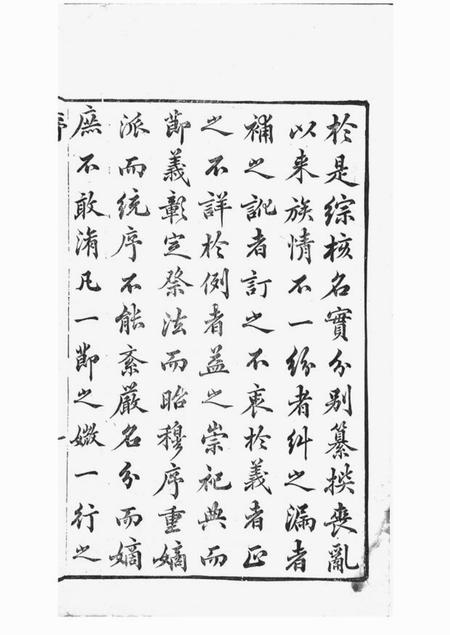 於是綜核名實分別纂撰喪亂
以來族情不一紛者糾之漏者
補之訛者訂之不衷於義者正
之不詳於例者益之崇祀典而
節義彰定祭法而昭穆序重嫡
派而統序不能紊嚴名分而嫡
庶不敢淆凡一節之媺一行之